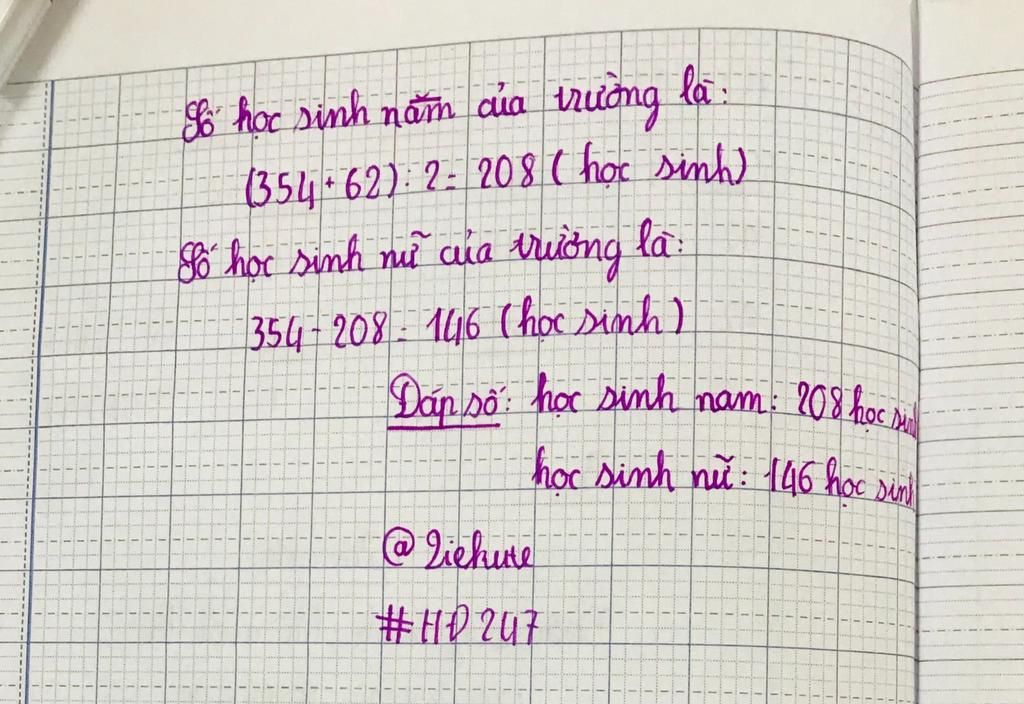 Số học sinh năm của trường là:
(354 + 62) : 2 = 208 ( học sinh)
Số học sinh nữ của trường là:
354 - 208 = 146 (học sinh)
Đáp số: học sinh nam: 208 học sinh
học sinh nữ: 146 học sinh
#HD247